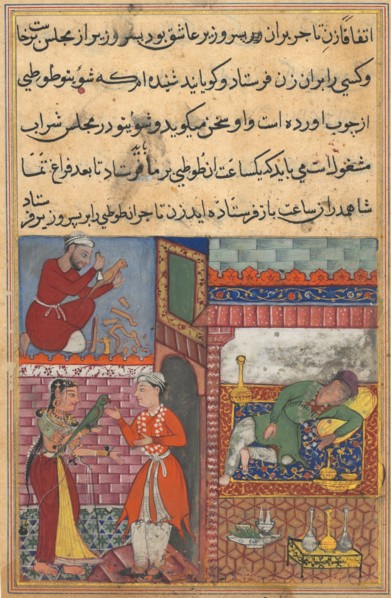 اتفاقا زن تاجر بران پسر وزیر عاشق بود پسر وزیر از مجلس برخاست
وکسی را بران زن فرستاد و گویانید شنیده ام که شوی تو طوطی
از چوب آورده است و او سخن میگوید و شوی تو در مجلس شراب
مشغول است می باید که یکساعت آن طوطی بر ما فرستاد تا بعد فراغ تماشا
شاهد راز ساعت باز فرستاده آید زن تاجر آن طوطی را بر پسر وزیر فرستاد